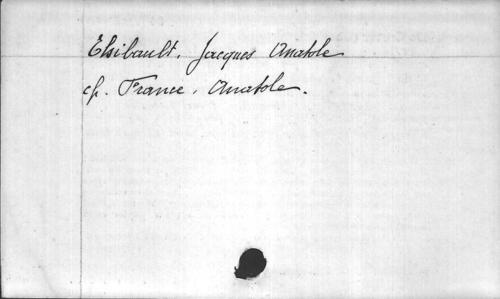 Elsibault, Jacques Anatole
cf. France, Anatole.